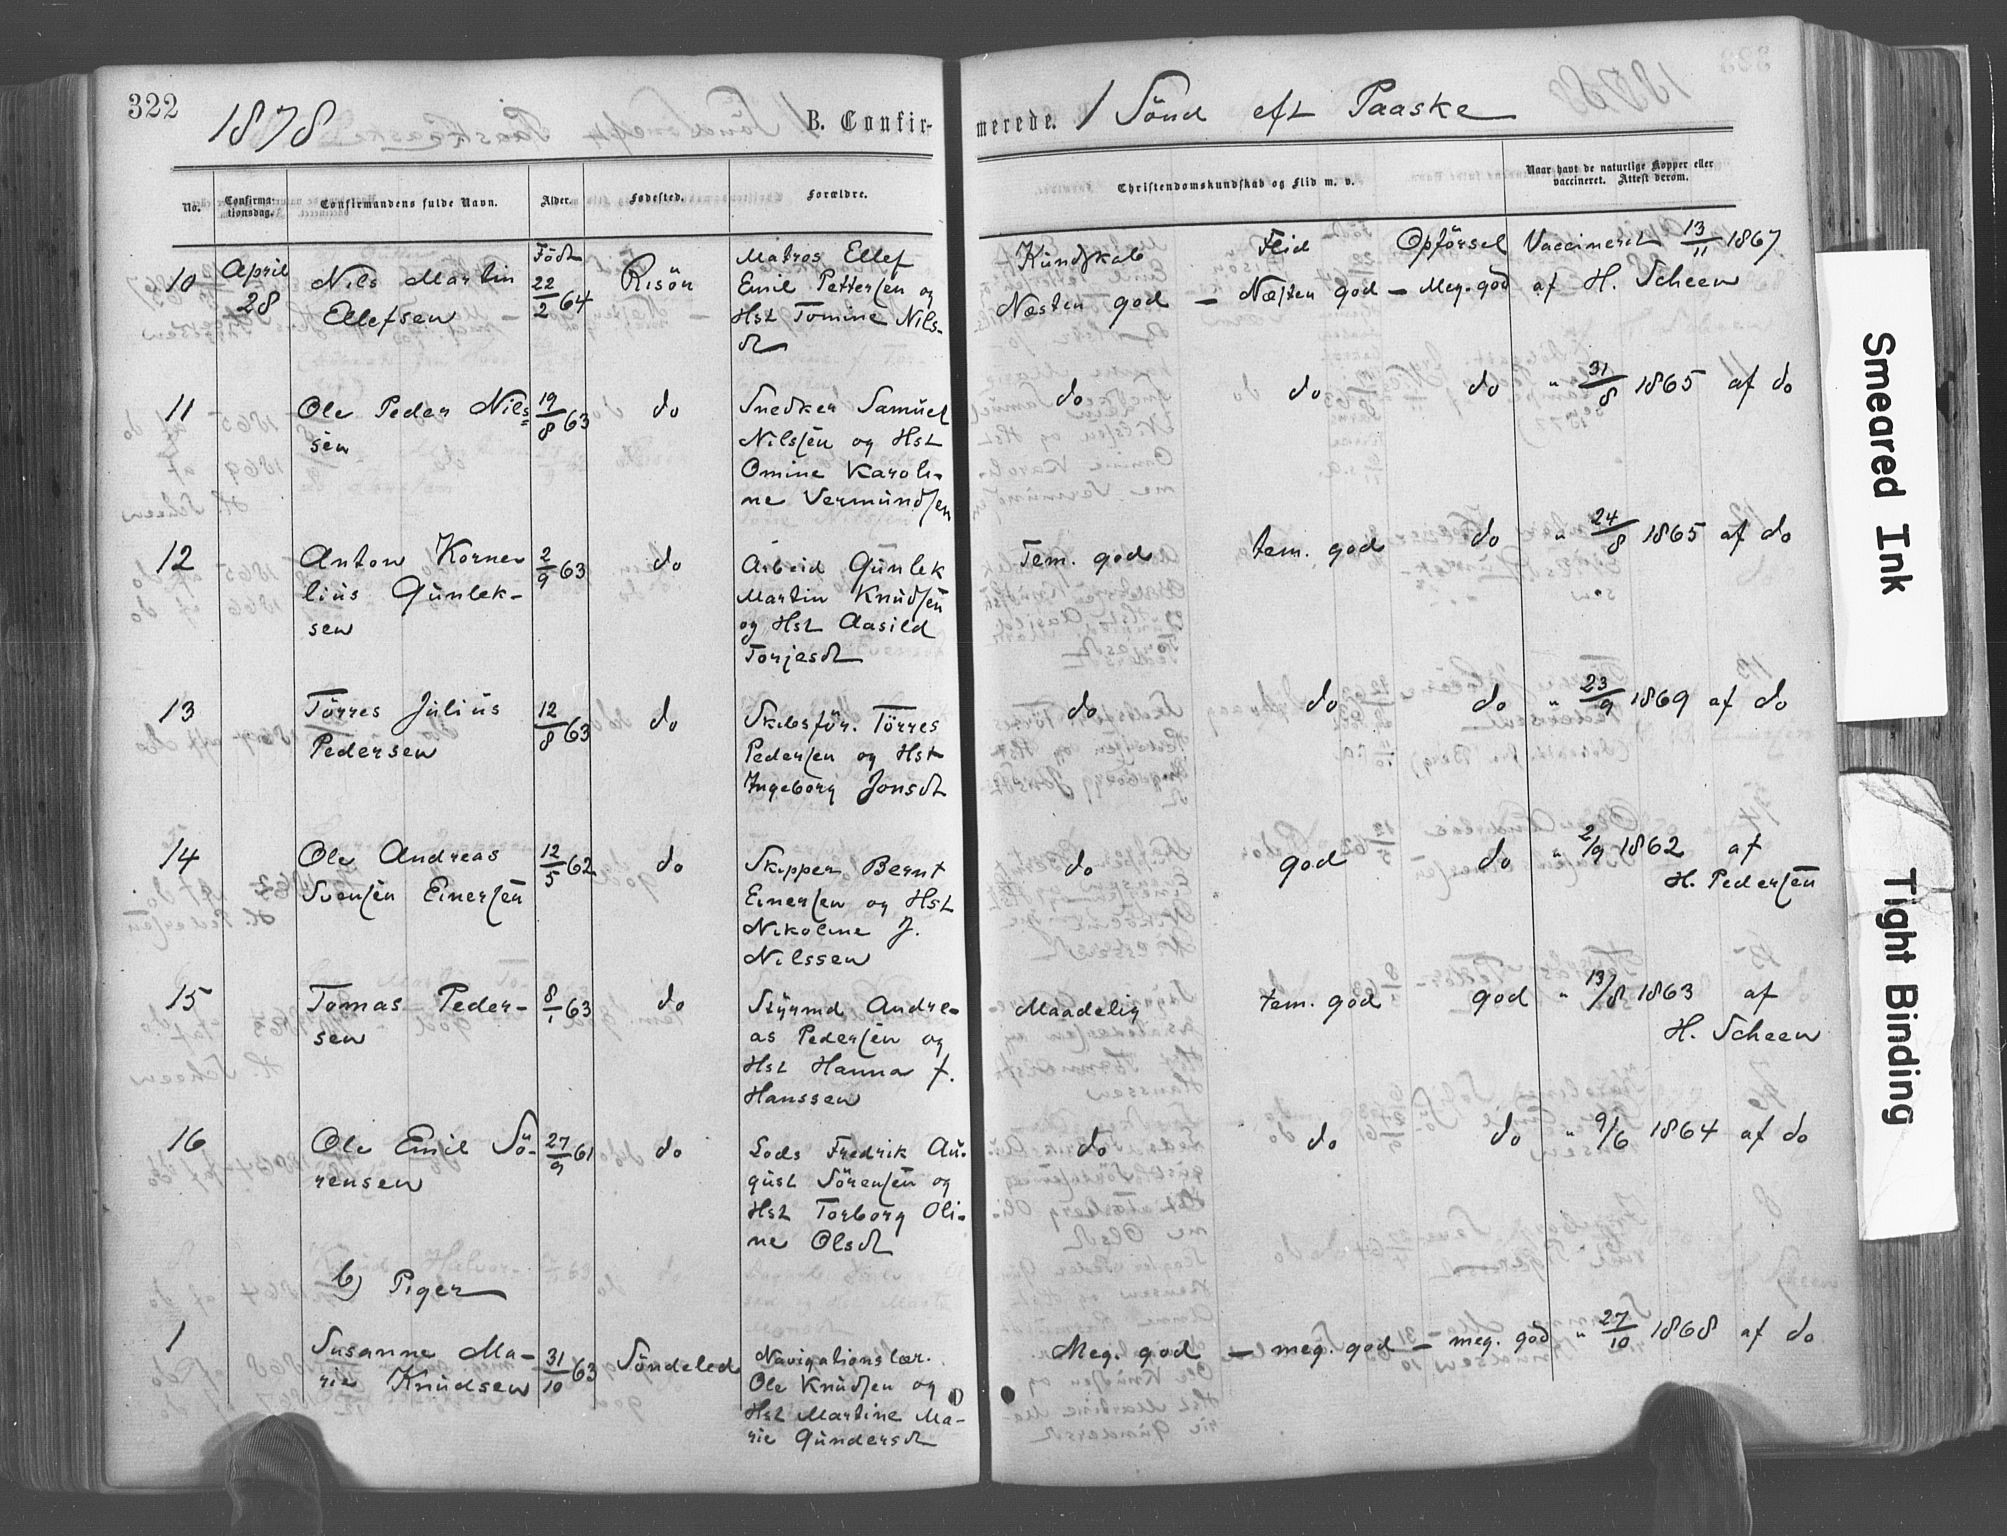 322
1878
B. Confirmerede.
1 Sönd eft Paaske
No.
Confirmationsdag.
Confirmandens fulde Navn.
Alder.
Fødested.
Forældre.
Christendomskundskab og Flid m. v.
Naar havt de naturlige Kopper eller
vaccineret. Attest derom.
10 April 28 Nils Martin
Ellefsen
Födt 22/2 64
Risör
Matros Ellef
Emil Pettersen og
Hst Tomine Nils-
dt
Kundskab Flid Opförsel
Næsten god — Næsten god — Meg. god
Vaccineret 13/11 1867
af H. Scheen
11 Ole Peder Nils=
sen
19/8 63
do
Snedker Samuel
Nilssen og Hst
Omine Karoli-
ne Vermundsen
do do do " 31/8 1865 af do
12 Anton Korne
lius Gunlek-
sen
2/9 63
do
Arbeid Gunlek
Martin Knudsen
og Hst Aasild
Torjesdt
Tem. god tem. god do " 24/8 1865 af do
13 Törres Julius
Pedersen
12/8 63
do
Skibsför. Törres
Pedersen og Hst
Ingeborg Jonsdt
do do do " 23/9 1869 af do
14 Ole Andreas
Svensen Einersen
12/5 62
do
Skipper Bernt
Einersen og Hst
Nikoline J.
Nilssen
do god do " 2/9 1862 af
H. Pedersen
15 Tomas Peder-
sen
8/1 63
do
Styrmd Andre-
as Pedersen og
Hst Hanna f.
Hanssen
Maadelig tem. god god " 13/8 1863 af
H. Scheen
16 Ole Emil Sö-
rensen
27/9 61
do
Lods Fredrik Au-
gust Sörensen og
Hst Torborg Oli-
ne Olsdt
do do do " 9/6 1864 af do
b) Piger
1 Susanne Ma-
rie Knudsen
31/10 63
Söndeled
Navigationslær.
Ole Knudsen og
Hst Martine Ma-
rie Gundersdt
Meg. god — meg. god — meg. god " 27/10 1868 af do
Smeared Ink
Tight Binding